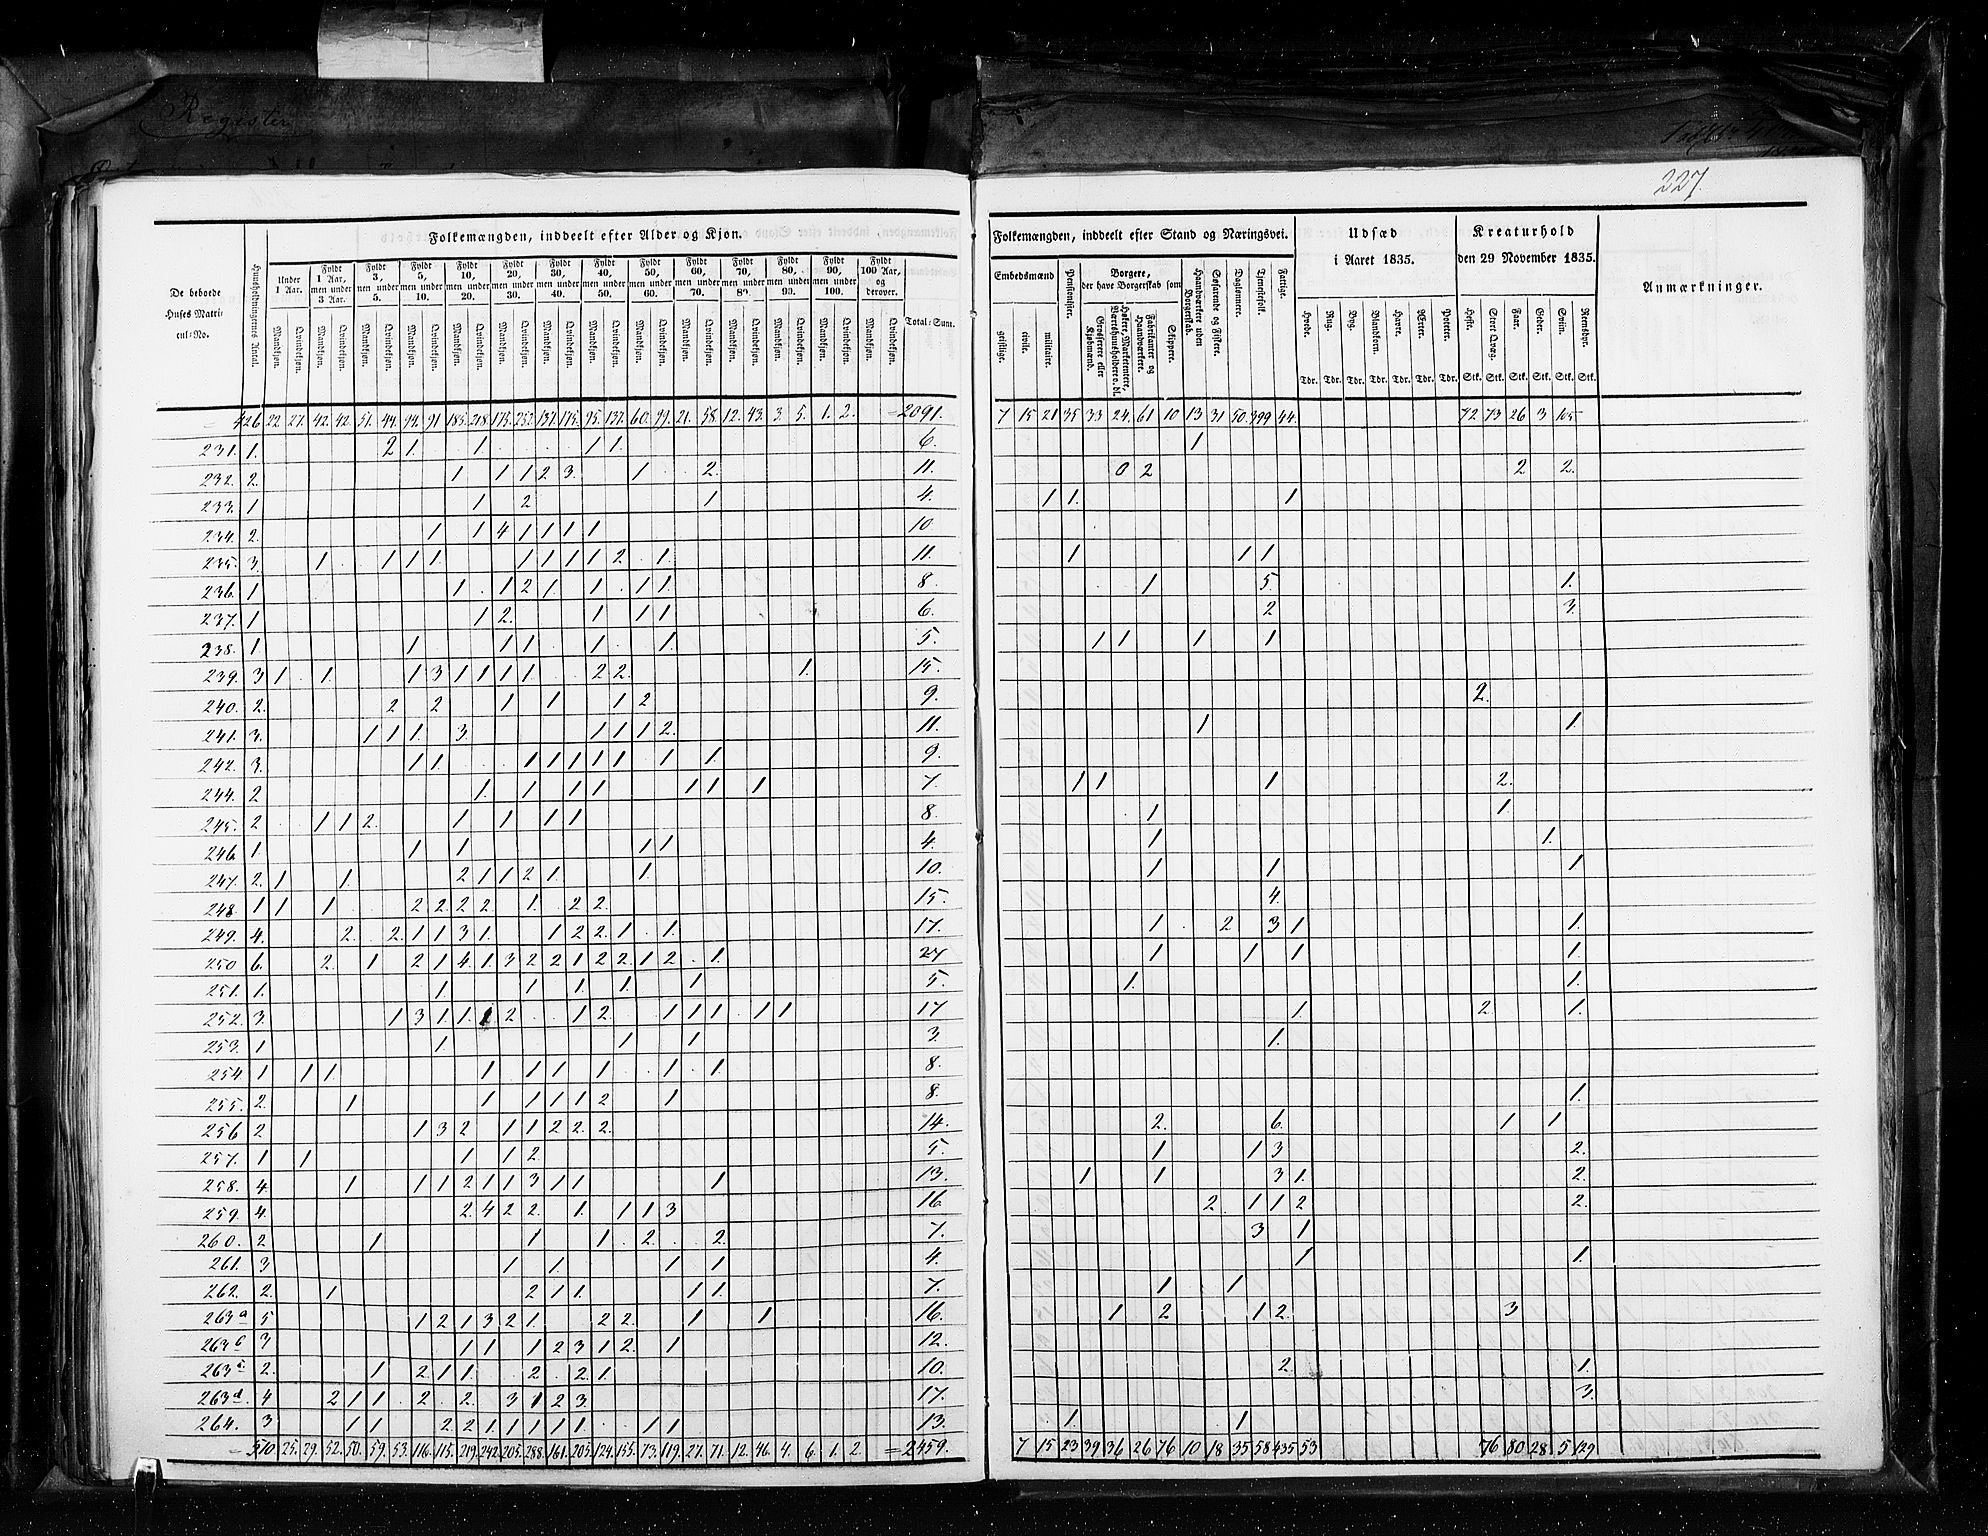 Register
227.
Folkemængden, inddeelt efter Alder og Kjøn.
De beboede Huses Matricul-No.
Huusholdningernes Antal.
Under 1 Aar.
Fyldt 1 Aar, men under 3 Aar.
Fyldt 3, men under 5.
Fyldt 5, men under 10.
Fyldt 10, men under 20.
Fyldt 20, men under 30.
Fyldt 30, men under 40.
Fyldt 40, men under 50.
Fyldt 50, men under 60.
Fyldt 60, men under 70.
Fyldt 70, men under 80.
Fyldt 80, men under 90.
Fyldt 90, men under 100.
Fyldt 100 Aar, og derover.
Mandkjøn. Qvindekjøn.
Total-Sum.
Folkemængden, inddeelt efter Stand og Næringsvei.
Embedsmænd
geistlige. civile. militaire.
Pensionister.
Borgere, der have Borgerskab som
Grosserere eller Kjøbmænd.
Høkere, Marketentere, Værtshuusholdere o. dl.
Fabrikanter og Haandværkere.
Skippere.
Haandværkere uden Borgerskab.
Søfarende og Fiskere.
Daglønnere.
Tjenestefolk.
Fattige.
Udsæd i Aaret 1835.
Hvede. Rug. Byg. Blandkorn. Havre. Ærter. Poteter.
Tdr. Tdr. Tdr. Tdr. Tdr. Tdr. Tdr.
Kreaturhold den 29 November 1835.
Heste. Stort Qvæg. Faar. Geder. Sviin. Rensdyr.
Stk. Stk. Stk. Stk. Stk. Stk.
Anmærkninger.
426 22. 27. 42. 42. 51. 44. 94. 91 185. 218. 175. 252. 137. 175. 95. 137. 60. 99. 21. 58. 12. 43. 3. 5. 1. 2. =2091. 7 15 21 35 33 24. 61 10 13 31 50. 399 44. 72 73 26 3 105
231. 1. 2 1. 1. 1 1. 6. 1
232. 2. 1 1 1 2 3. 1 2. 11. 0 2 2 2.
233. 1 1 2 1 4. 1 1. 1
234. 2. 1 1 4 1 1 1 1 10.
235. 3. 1 1 1 1. 1 1 1 1 2 1. 11. 1 1 1
236. 1 1 1 2 1. 1 1 1. 8 1 5. 1.
237. 1 1 2. 1 1 1 6. 2 3.
238. 1 1 1 1 1 1. 5. 1 1 1 1
239. 3 1 1. 1 3 1 1 1 1. 2 2. 1. 15.
240. 2. 2 2 1 1 1 2 9. 2.
241. 3. 1 1 1. 3. 1 1 1 2. 11. 1 1.
242. 3. 1 1. 1 1 1 1 1 1 1. 9.
244. 2 1. 1 1 1 1 1 1 7. 1 1 1 2.
245. 2 1 1 2. 1 1 1 1 8. 1 1.
246. 1. 1 1 1 1 4. 1 1.
247. 2. 1 1. 2 1 1 2 1. 1. 10. 1 1 1
248 1 1 1 2 2. 2 2. 1. 2 2. 15. 4.
249. 4. 2. 2. 1 1 3 1. 1 2 2. 1 1. 17. 1 2 3 1 1.
250 6. 2. 1 2 1 4. 1. 3 2 2 1 2 2. 1 2 1. 27 1 1 1 1.
251. 1. 1 1 1. 1. 1 5. 1. 1.
252. 3. 1 3 1 1. 1 2 1 2. 1 1 1 1 1 17 1 2. 1.
253. 1 1 1 1 3. 1.
254. 1 1 1. 1 1 1 1 1 1 8.
255. 2. 1 1 1 1 1 2 1 8. 1.
256 2 1 3 2 1 1 2 2. 2. 14. 2. 6. 1 1
257. 1 1 1 1 2 5. 1 1 3 2.
258. 4. 1 1 1 2 1 1 3 1 1 1 13. 1 1 3 1. 2.
259. 4. 2. 4 2 2. 1. 1 1 3 16 2. 1 1 2 2.
260. 2 1 1 1 2. 2. 7. 3 1
261. 3 1 1. 1 1 4. 1 1.
262. 2. 1 2 1 1 1 1 7. 1 1
263a 5 1 2 1 3 2 1. 2 2. 1 1 16. 1 2 1 2. 3
263b 3 1 1 1 2 3 1 2. 1 12.
263c 2. 1 2 1 1. 2 2 1 10. 2. 1.
263d. 4 2 1 1 2. 2. 3 1 2 3. 17. 3.
264. 3 1 1 2. 2 1. 1 1 1 1 1 1 13. 1. 1
510 25. 29. 52. 50. 59. 53. 116. 115. 219. 242. 205. 288. 161. 205. 124. 155. 73. 119. 27. 71. 12. 46. 4. 6. 1. 2. =2459. 7 15 23 39 36 26 76 10 18 35 58 435 53 76 80 28 5 129